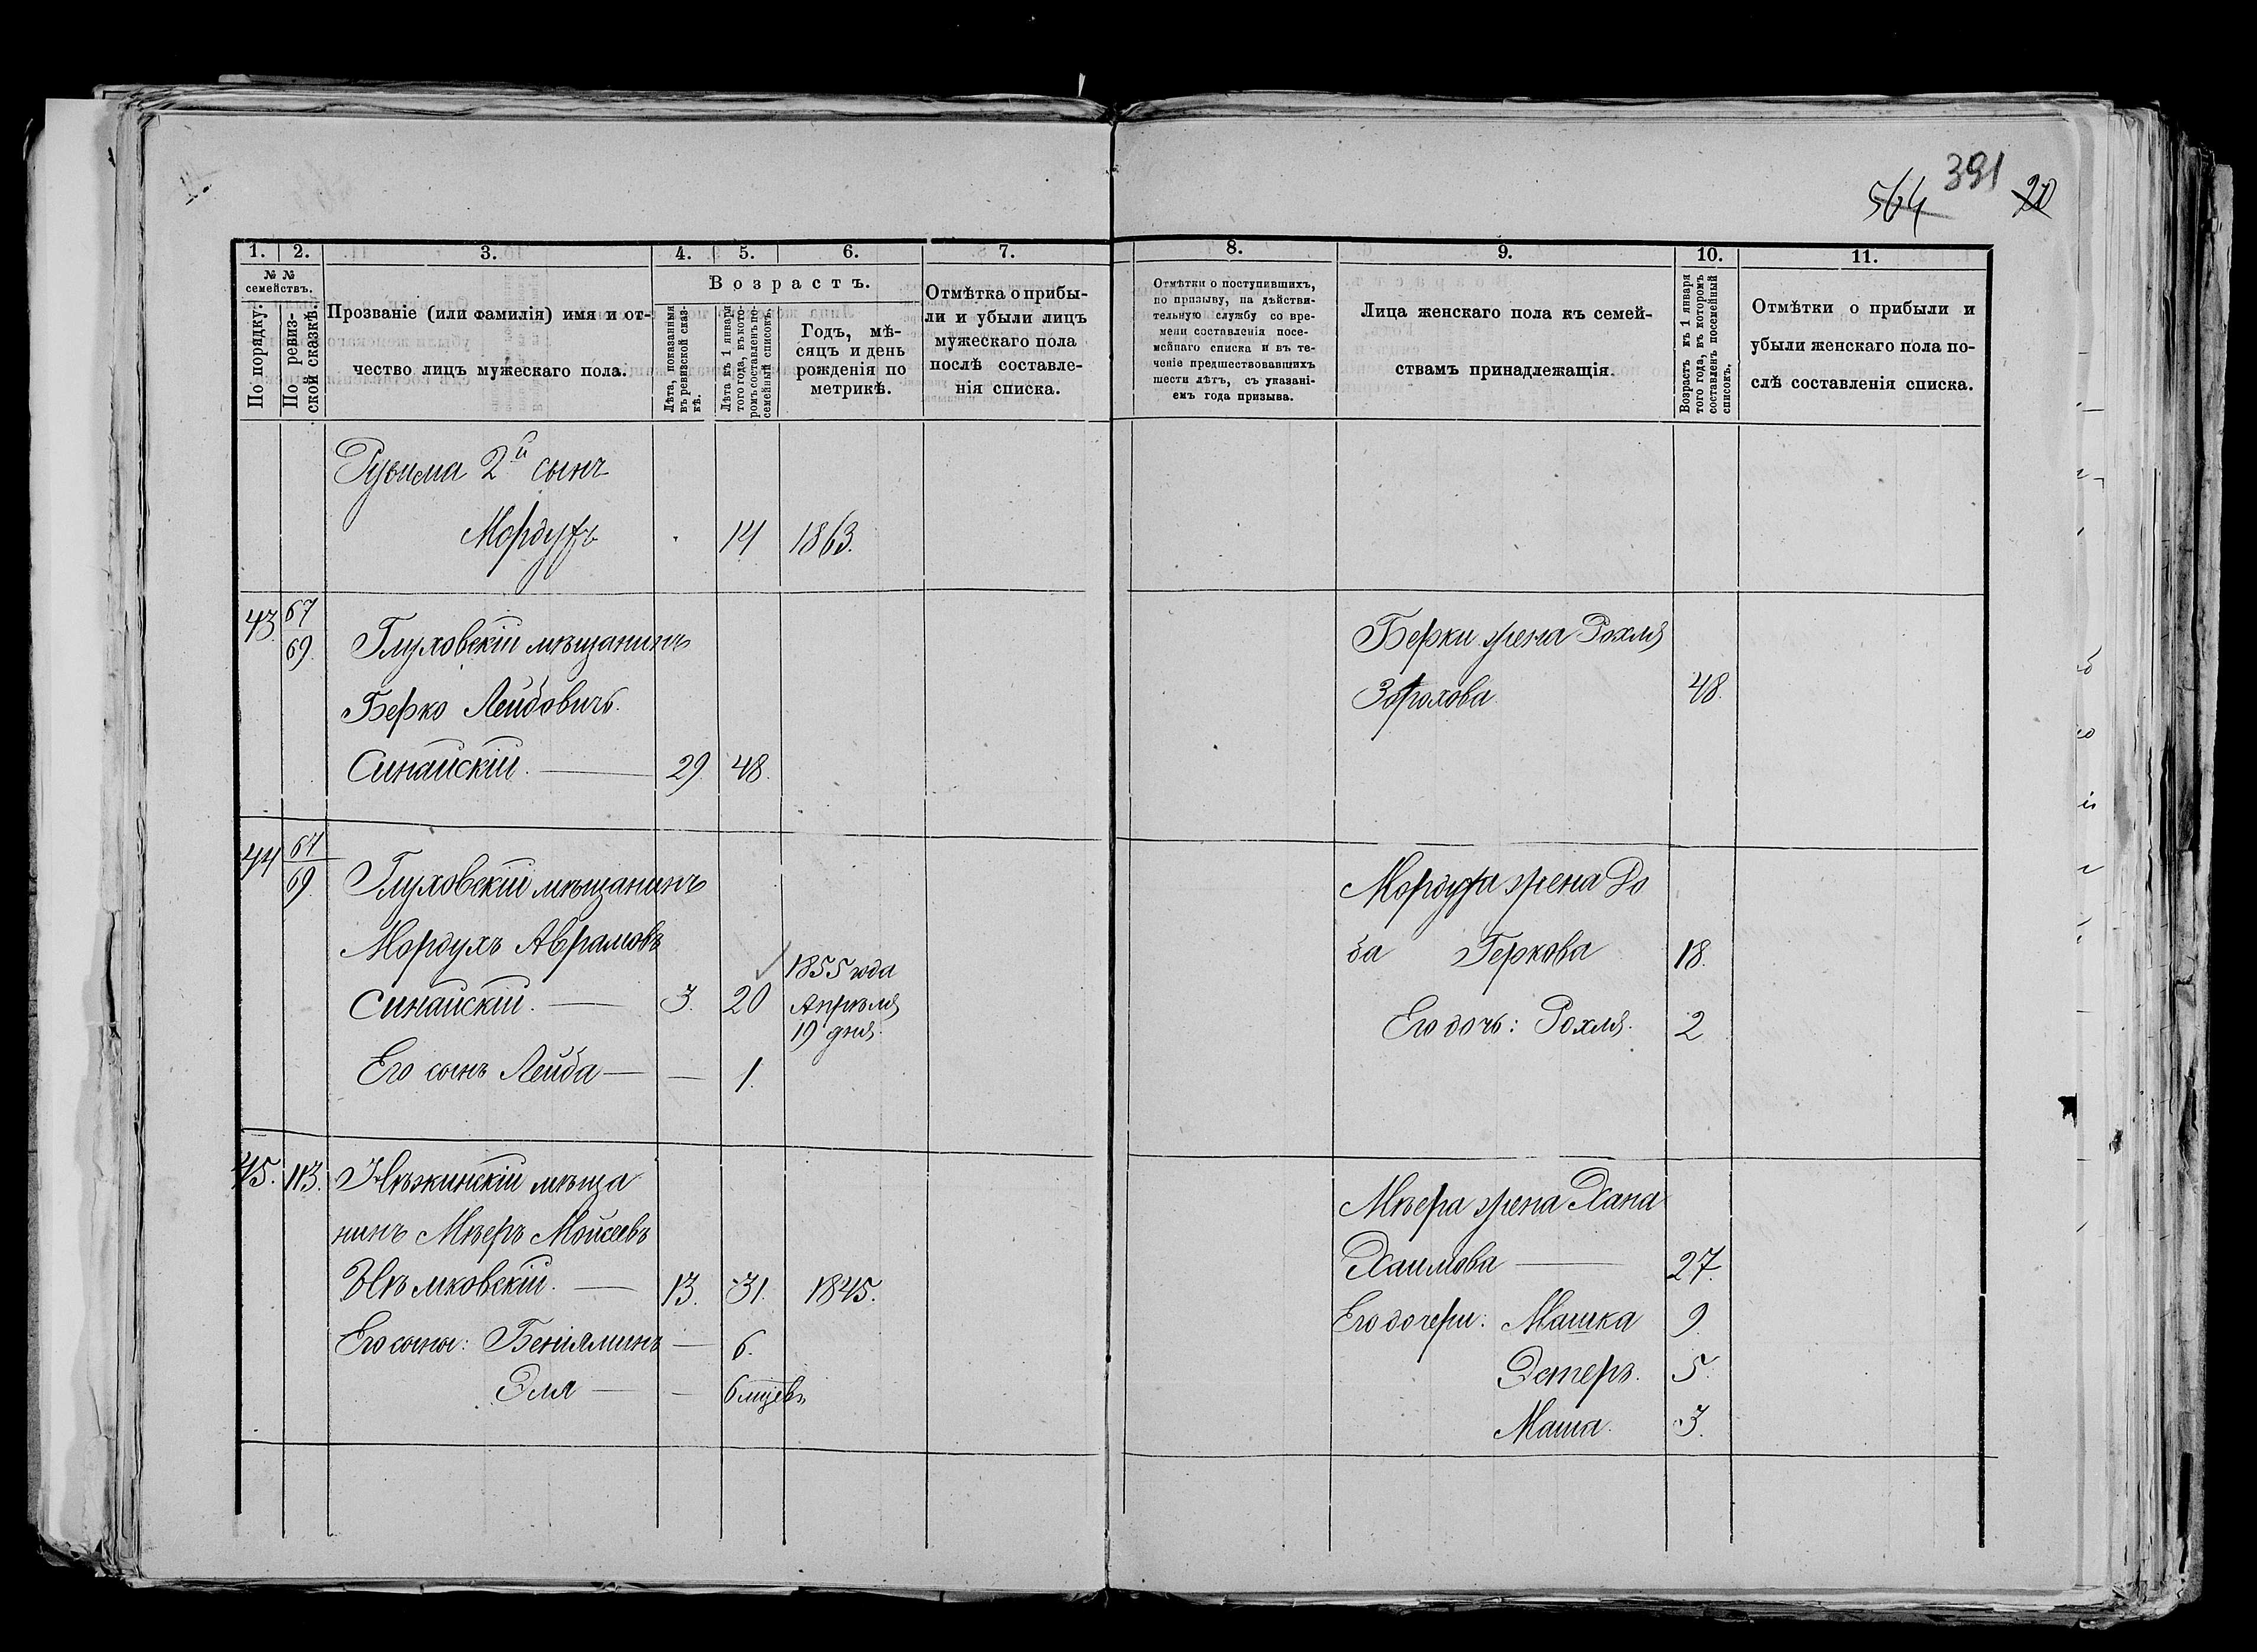 391
564 20
1. 2. 3. 4. 5. 6. 7.
№ № семействъ.
По порядку.
По ревизской сказкѣ.
Прозваніе (или фамилія) имя и отчество лицъ мужескаго пола.
Возрастъ.
Лѣта, показанныя въ ревизской сказкѣ.
Лѣта къ 1 января того года, въ которомъ составленъ посемейный списокъ.
Годъ, мѣсяцъ и день рожденія по метрикѣ.
Отмѣтка о прибыли и убыли лицъ мужескаго пола послѣ составленія списка.
8. 9. 10. 11.
Отмѣтки о поступившихъ, по призыву, на дѣйствительную службу со времени составленія посемейнаго списка и въ теченіе предшествовавшихъ шести лѣтъ, съ указаніемъ года призыва.
Лица женскаго пола къ семействамъ принадлежащія.
Возрастъ къ 1 января того года, въ которомъ составленъ посемейный списокъ.
Отмѣтки о прибыли и убыли женскаго пола послѣ составленія списка.
2й сынъ
Мордухъ 14 1863.
43. 67
69. Глуховскій мѣщанинъ
Берко Лейбовичъ.
Синайскій. — 29. 48.
Берки жена Рохля
48.
44 67
69. Глуховскій мѣщанинъ
Мордухъ Аврамовъ
Синайскій. — 3. 20 1855 года
Апрѣля
19 дня.
Его сынъ Лейба — — 1.
Мордуха жена До
ба Геркова 18.
Его дочь: Рохля. 2
45. 113. Нѣжинскій мѣща
нинъ Мѣеръ Мойсеевъ
— 13. 31. 1845.
Его сыны: Беніяминъ — 6.
Эля — — 6 мцевъ
Мѣера жена Хана
Хаимова — 27.
Его дочери: Машка 9.
Эстеръ. 5.
Маша. 3.